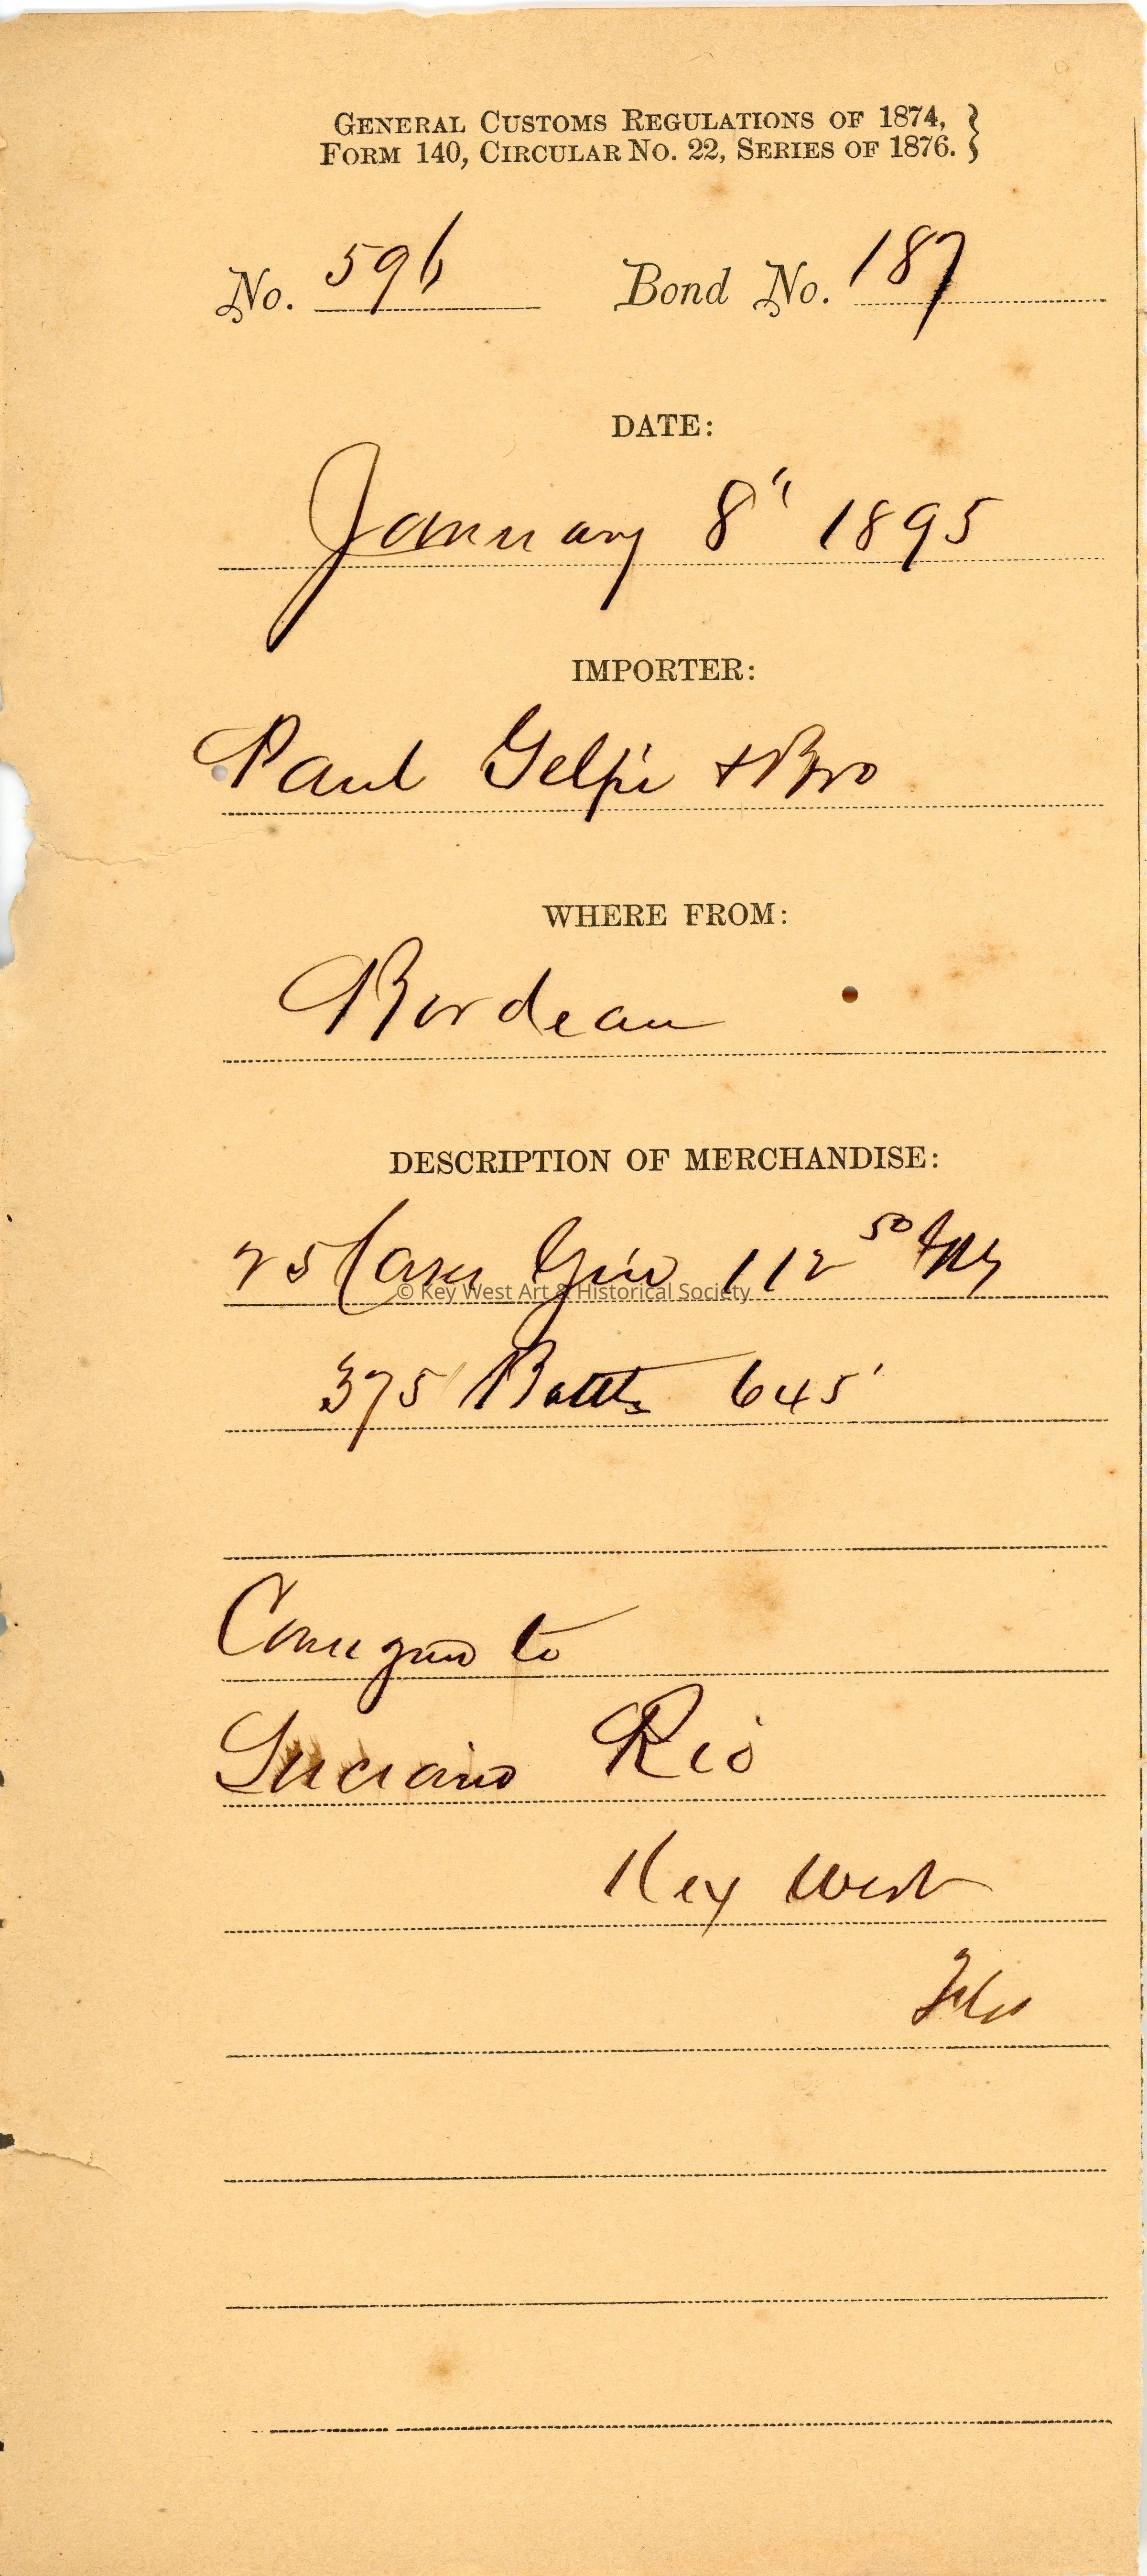 GENERAL CUSTOMS REGULATIONS OF 1874,
FORM 140, CIRCULAR NO. 22, SERIES OF 1876.
No. 596 Bond No. 187
DATE:
January 8" 1895
IMPORTER:
Paul Gelpi + Bro
WHERE FROM:
Bordeau
DESCRIPTION OF MERCHANDISE:
25 Cases Gin 112 50
© Key West Art & Historical Society
375 Bottls 645
to
Luciano Rio
Key West
Fla